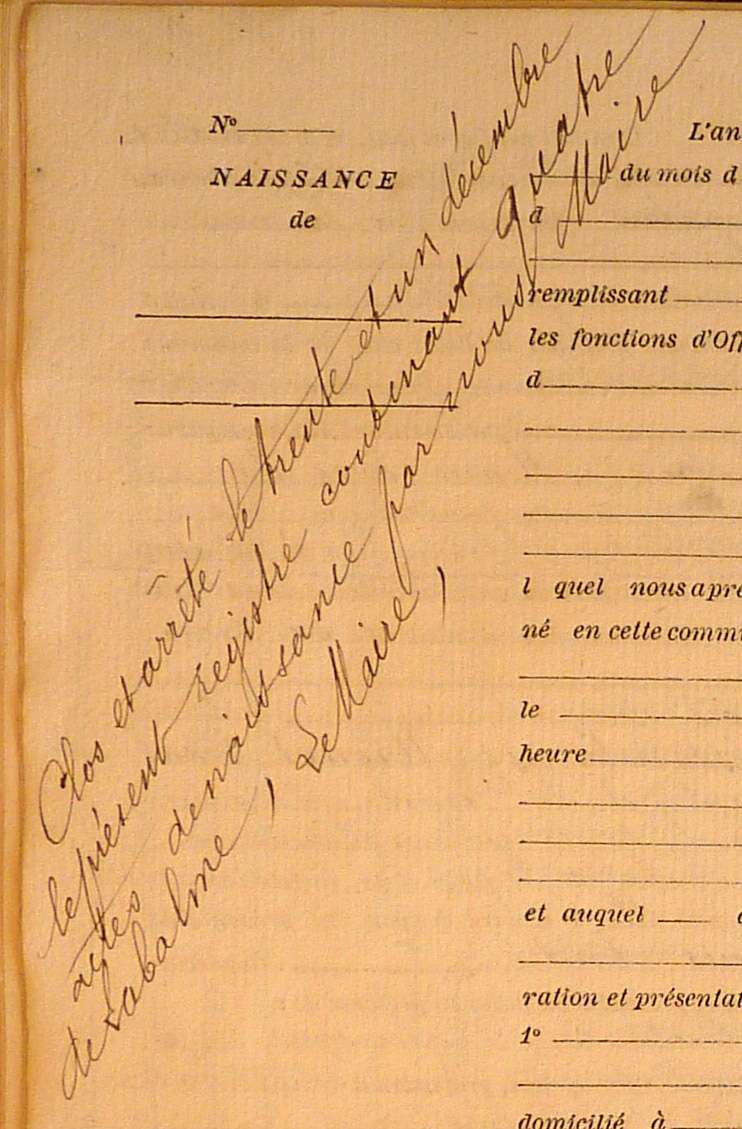 N°
NAISSANCE
de
Clos et arrêté le trente et un décembre
le présent registre contenant quatre
actes de naissance par nous, Maire
de Labalme, Le Maire,
L'an
du mois d
d
remplissant
les fonctions d'Off
d
l quel nous apré
né en cette commu
le
heure
et auquel
ration et présentat
1°
domicilié à